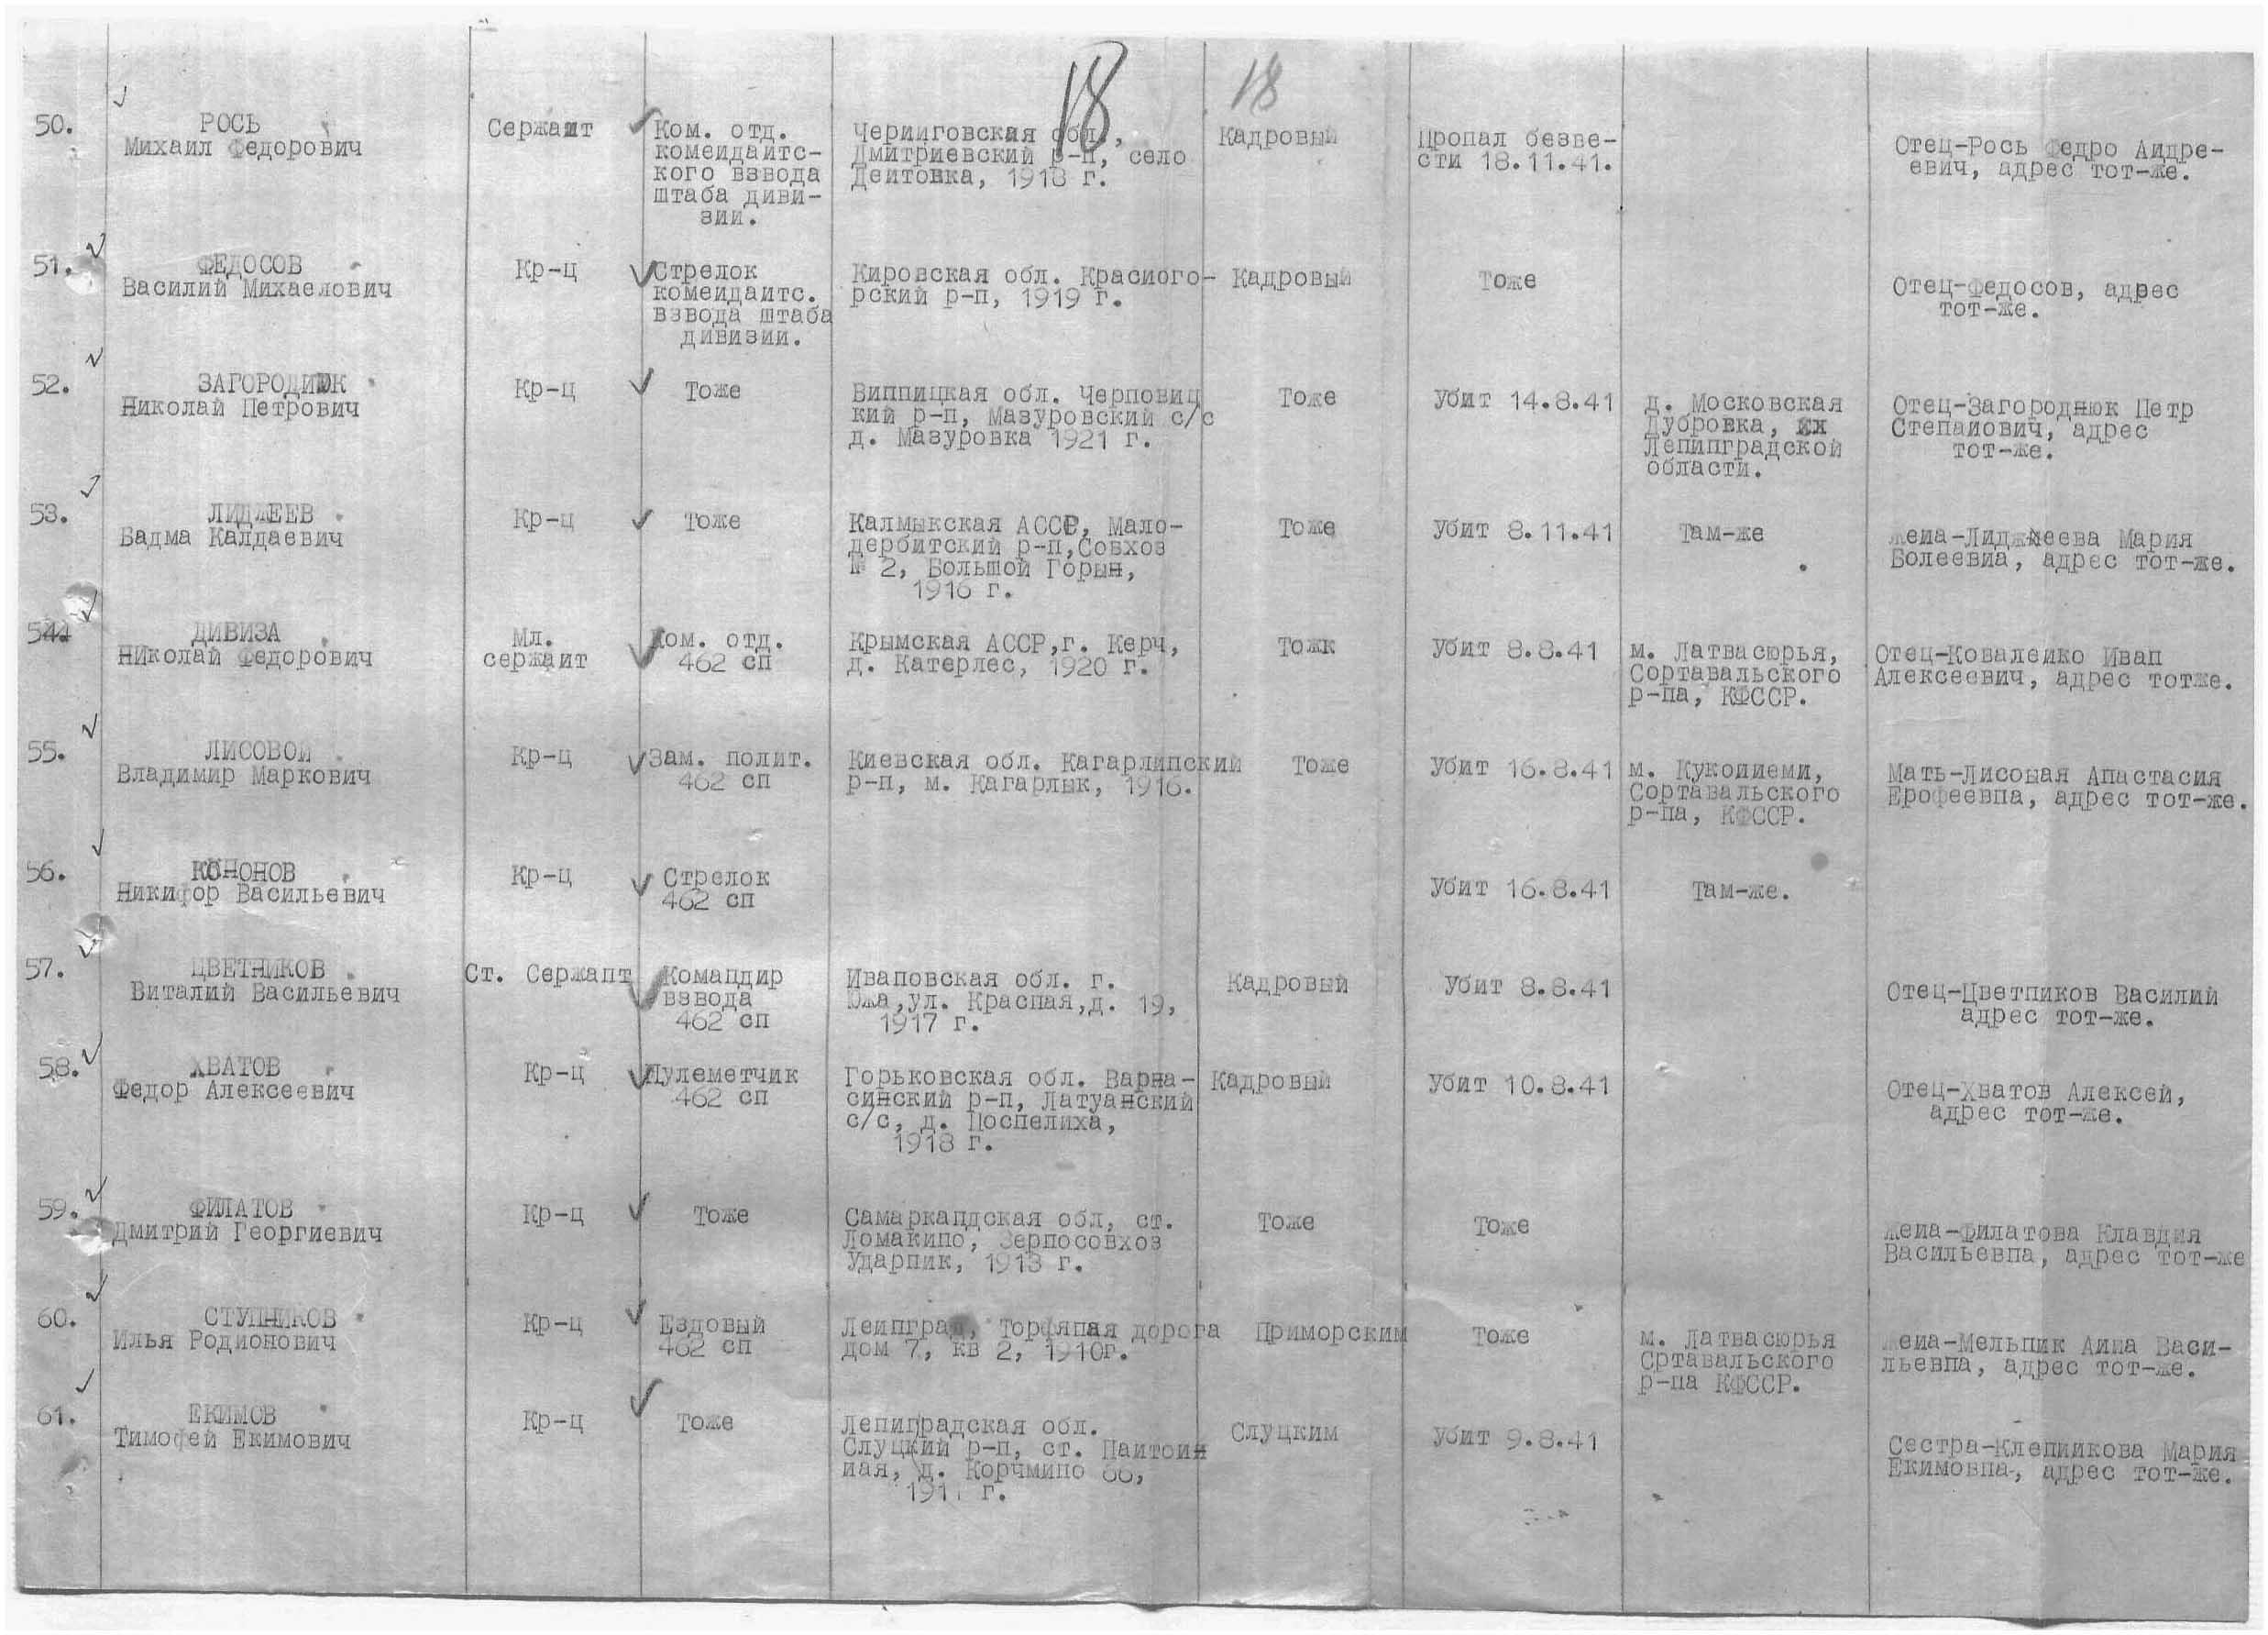 18 18
50. РОСЬ
Михаил Федорович
Сержант
Ком. отд.
комендантс-
кого взвода
штаба диви-
зии.
Черниговская обл.,
Дмитриевский р-н, село
Дейтовка, 1918 г.
Кадровый
Пропал безве-
сти 18.11.41.
Отец-Рось Федро Андре-
евич, адрес тот-же.
51. ФЕДОСОВ
Василий Михаелович
Кр-ц
Стрелок
комендантс.
взвода штаба
дивизии.
Кировская обл. Красного-
рский р-н, 1919 г.
Кадровый
Тоже
Отец-Федосов, адрес
тот-же.
52. ЗАГОРОДНЮК
Николай Петрович
Кр-ц
Тоже
Винницкая обл. Черновиц
кий р-н, Мазуровский с/с
д. Мазуровка 1921 г.
Тоже
Убит 14.8.41
д. Московская
Дубровка,
Ленинградской
области.
Отец-Загороднюк Петр
Степанович, адрес
тот-же.
53. ЛИДЖЕЕВ
Бадма Калдаевич
Кр-ц
Тоже
Калмыкская АССР, Мало-
дербитский р-н,Совхоз
№ 2, Большой Горын,
1916 г.
Тоже
Убит 8.11.41
Там-же
Жена-Лиджеева Мария
Болеевна, адрес тот-же.
54. ДИВИЗА
Николай Федорович
Мл.
сержант
Ком. отд.
462 сп
Крымская АССР,г. Керч,
д. Катерлес, 1920 г.
Тожк
Убит 8.8.41
м. Латвасюрья,
Сортавальского
р-на, КФССР.
Отец-Коваленко Иван
Алексеевич, адрес тотже.
55. ЛИСОВОЙ
Владимир Маркович
Кр-ц
Зам. полит.
462 сп
Киевская обл. Кагарлинский
р-н, м. Кагарлык, 1916.
Тоже
Убит 16.8.41
м. Кукониеми,
Сортавальского
р-на, КФССР.
Мать-Лисовая Анастасия
Ерофеевна, адрес тот-же.
56. КОНОНОВ
Никифор Васильевич
Кр-ц
Стрелок
462 сп
Убит 16.8.41
Там-же.
57. ЦВЕТНИКОВ
Виталий Васильевич
Ст. Сержант
Командир
взвода
462 сп
Ивановская обл. г.
Южа,ул. Красная,д. 19,
1917 г.
Кадровый
Убит 8.8.41
Отец-Цветников Василий
адрес тот-же.
58. ХВАТОВ
Федор Алексеевич
Кр-ц
Пулеметчик
462 сп
Горьковская обл. Варна-
синский р-н, Латуанский
с/с, д. Поспелиха,
1918 г.
Кадровый
Убит 10.8.41
Отец-Хватов Алексей,
адрес тот-же.
59. ФИЛАТОВ
Дмитрий Георгиевич
Кр-ц
Тоже
Самаркандская обл, ст.
Ломакино, Зерносовхоз
Ударник, 1913 г.
Тоже
Тоже
Жена-Филатова Клавдия
Васильевна, адрес тот-же
60. СТУПНИКОВ
Илья Родионович
Кр-ц
Ездовый
462 сп
Ленинград, Торфяная дорога
дом 7, кв 2, 1910г.
Приморским
Тоже
м. Латвасюрья
Сртавальского
р-на КФССР.
Жена-Мельник Анна Васи-
льевна, адрес тот-же.
61. ЕКИМОВ
Тимофей Екимович
Кр-ц
Тоже
Ленинградская обл.
Слуцкий р-н, ст. Пантоин
ная, д. Корчмино 66,
г.
Слуцким
Убит 9.8.41
Сестра-Клепикова Мария
Екимовна, адрес тот-же.